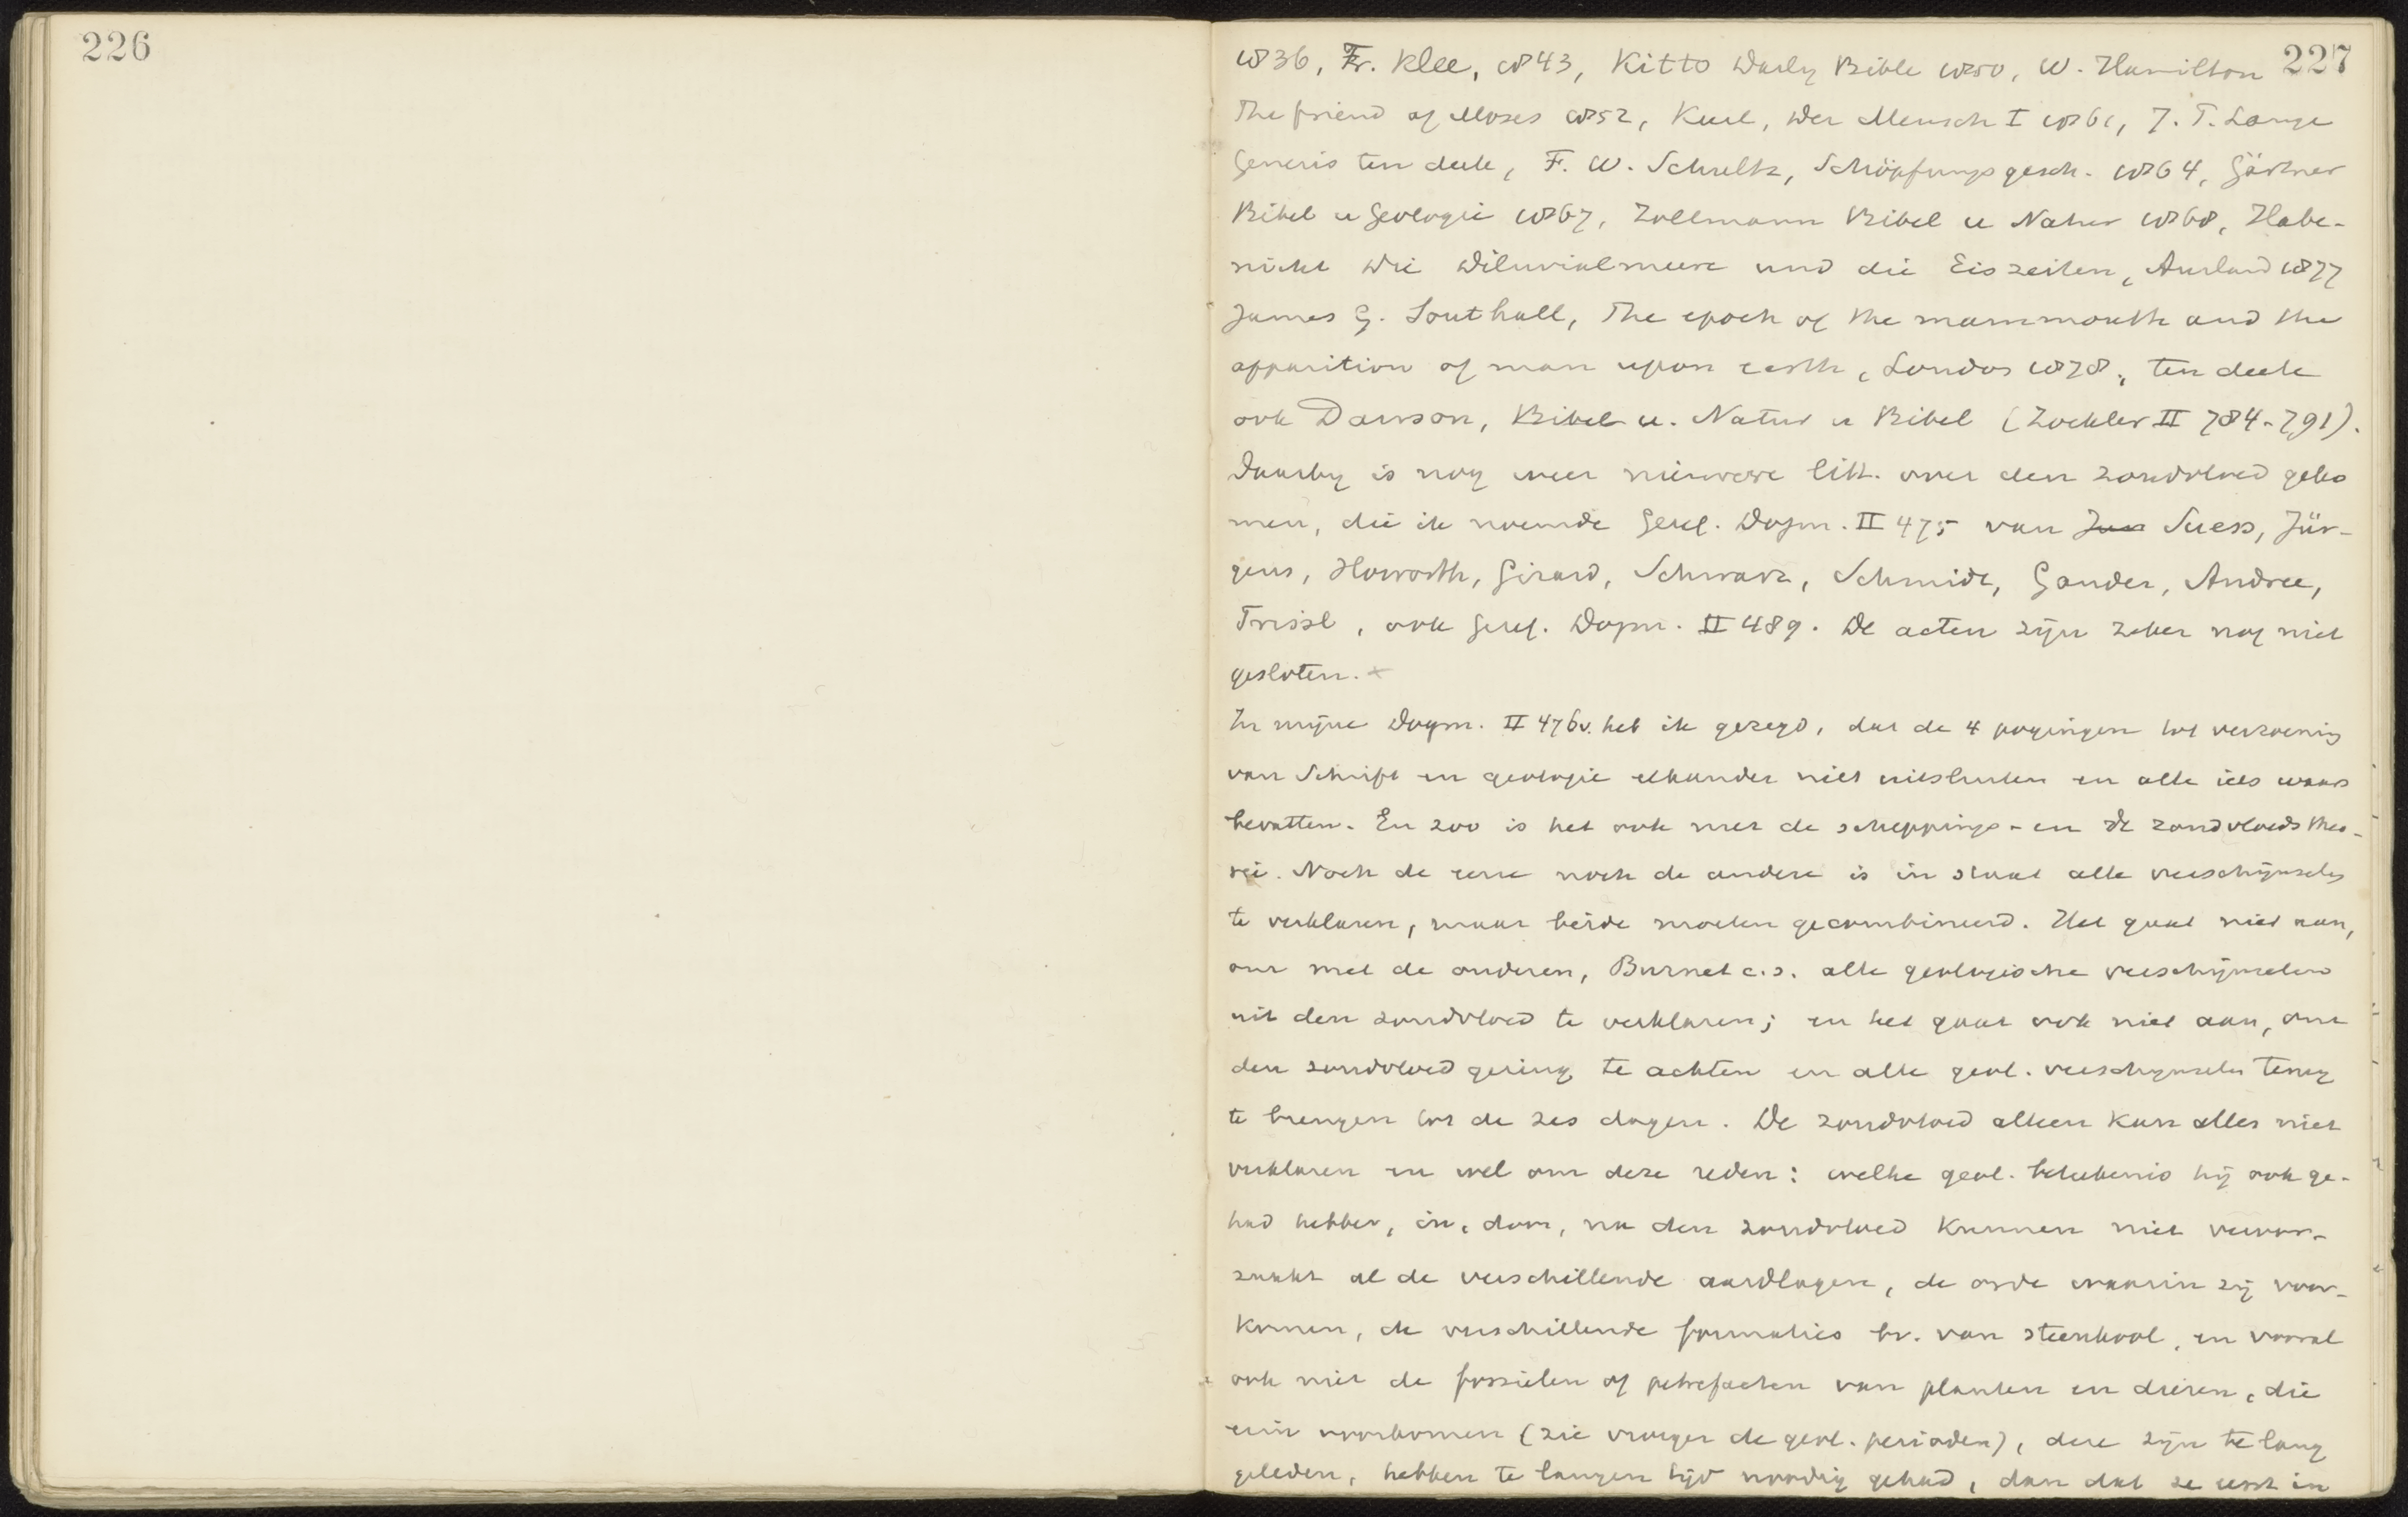 226
227
1836, Fr. Klee, 1843, Kitto Daily Bible 1850, W. Hamilton
The friend of Moses 1852, Keerl, Der Mensch I 1861, J. P. Lange
Genesis ten deele, F. W. Schultz, Schöpfungsgesch. 1864, Gärtner
Bibel u Geologie 1867, Zollmann Bibel u Natur 1868, Habe-
nicht Die Diluvialmeere und die Eiszeiten, Ausland 1877
James G. Southall, The epoch of the mammouth and the
apparition of man upon earth, London 1878, ten deele
ook Dawson, Bibel u. Natur u Bibel (Zöckler II 784-791).
Daarby is nog weer nieuwere litt. over den zondvloed geko
men, die ik noemde Geref. Dogm. II 475 van Suess, Jür-
gens, Howorth, Girard, Schwarz, Schmidt, Gander, Andree,
Trissl, ook Geref. Dogm. II 489. De acten zijn zeker nog niet
gesloten. x
In mijne Dogm. II 476v. heb ik gezegd, dat de 4 pogingen tot verzoening
van Schrift en geologie elkander niet uitsluiten en alle iets waars
bevatten. En zoo is het ook met de scheppings- en de zondvloedstheo-
rie. Noch de eene noch de andere is in staat alle verschijnselen
te verklaren, maar beide moeten gecombineerd. Het gaat niet aan,
om met de ouderen, Burnet c.s. alle geologische verschijnselen
uit den zondvloed te verklaren; en het gaat ook niet aan, om
den zondvloed gering te achten en alle geol. verschynselen terug
te brengen tot de zes dagen. De zondvloed alleen kan alles niet
verklaren en wel om deze reden: welke geol. beteekenis hij ook ge-
had hebbe, in, door, na den zondvloed kunnen niet veroor-
zaakt al de verschillende aardlagen, de orde waarin zij voor-
komen, de verschillende formaties bv. van steenkool, en vooral
ook niet de fossielen of petrefacten van planten en dieren, die
erin voorkomen (zie vroeger de geol. perioden), deze zijn te lang
geleden, hebben te langen tijd noodig gehad, dan dat ze eerst in